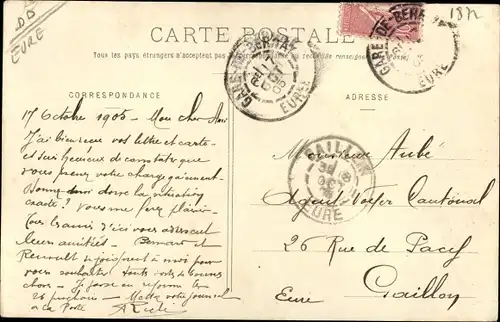 DB
EURE
1872
CARTE POSTALE
Tous les pays étrangers n'acceptent pas
CORRESPONDANCE
ADRESSE
GARE-DE-BERNAY
EURE
GARE-DE-BERNAY
EURE
GAILLON
EURE
17 Octobre 1905 - Mon cher Ami
J'ai bien reçu vos lettre et carte
et suis heureux de constater que
vous prenez votre change gaiement
Donnez donc la situation
exacte? Vous me ferez plaisir
Tous les amis d'ici vous adressent
leurs amitiés - Bernart et
Renault se joignent à moi pour
vous souhaiter toutes sortes de bonnes
choses - Je passe au reforme le
26 prochain - Mettez votre journal
à la Poste
Monsieur Aubé
Agent Voyer Cantonal
26 Rue de Pacy
Gaillon
Eure